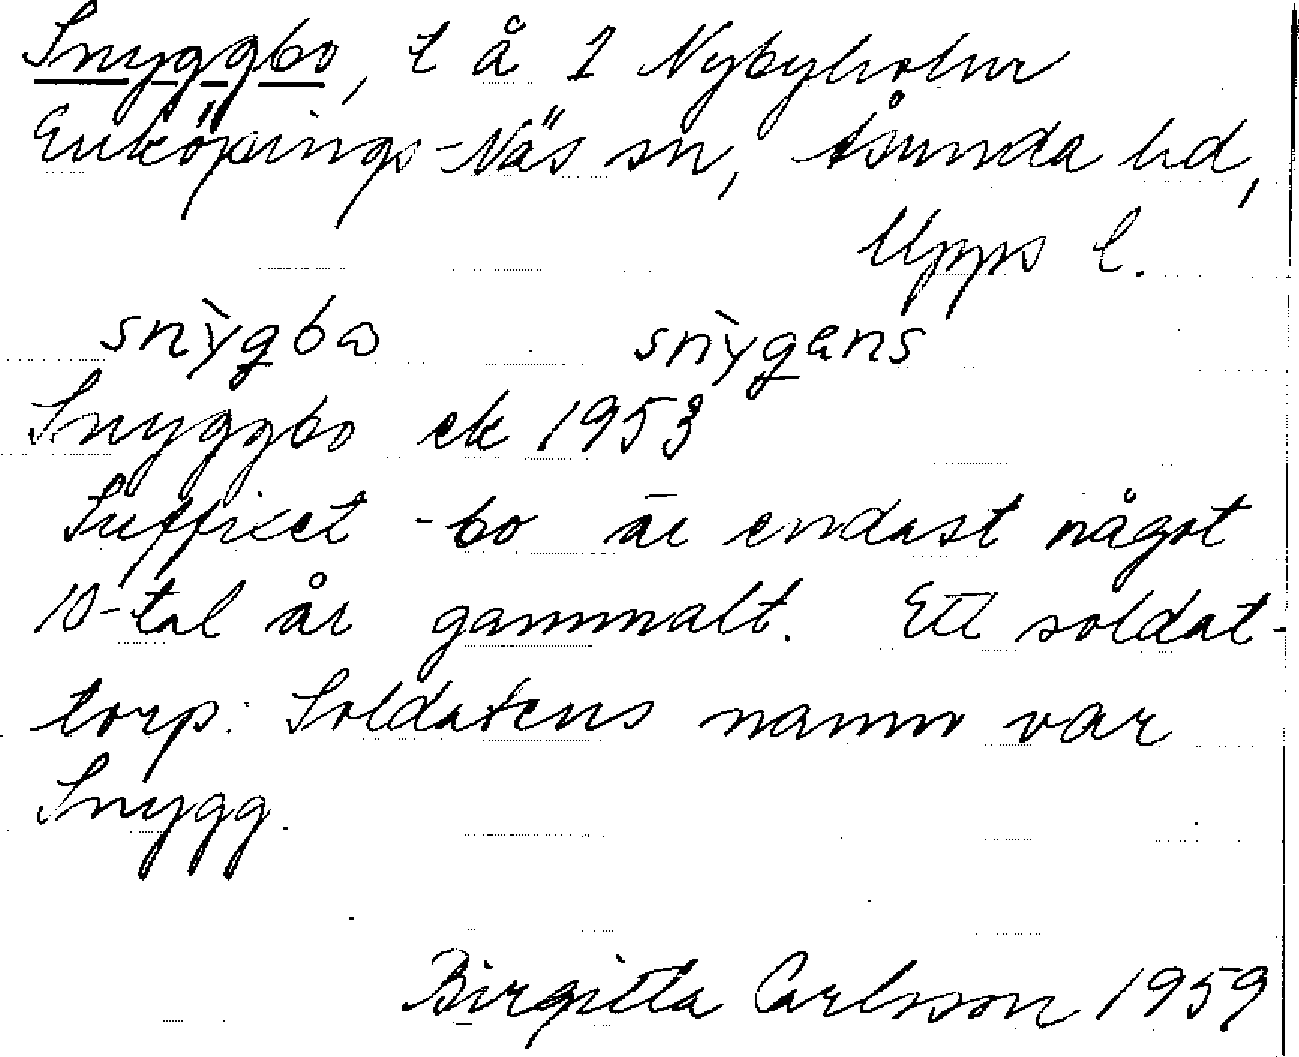 Snyggbo, t å 1 Nybyholm
Enköpings-Näs sn, Åsunda hd,
Upps l.
snỳgbω snỳgens
Snyggbo ek 1953
Suffixet -bo är endast något
10-tal år gammalt. Ett soldat-
torp. Soldatens namn var
Snygg.
Birgitta Carlsson 1959